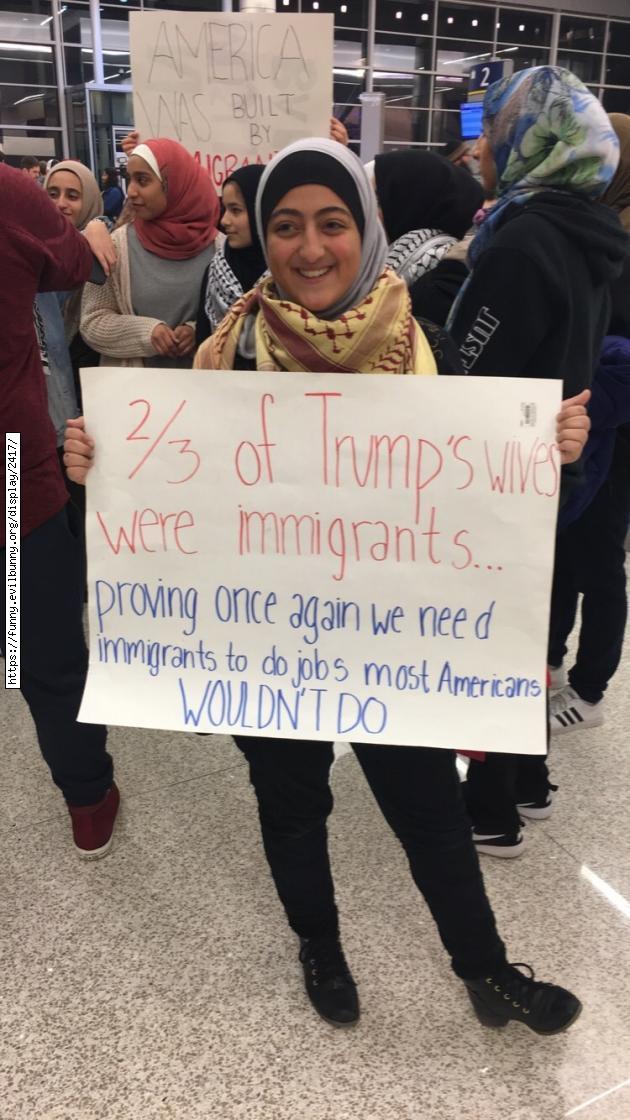 AMERICA
WAS BUILT
BY
2
2/3 of Trump's wives
were immigrants...
proving once again we need
immigrants to do jobs most Americans
WOULDN'T DO
https://funny.evilbunny.org/display/2417/